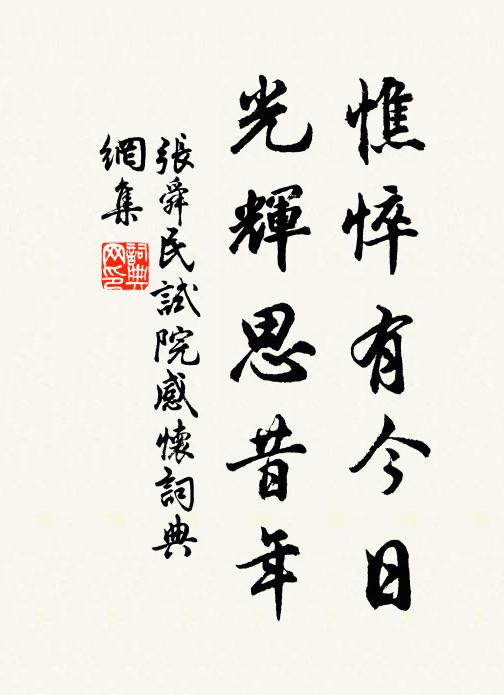 憔悴有今日
光輝思昔年
張舜民試院感懷詞典
網集
詞典
网印